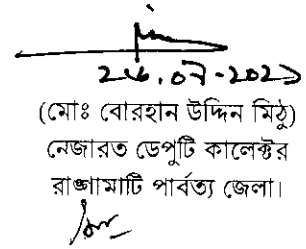 (মোঃ বোরহান উদ্দিন মিঠু)
নেজারত ডেপুটি কালেক্টর
রাঙ্গামাটি পার্বত্য জেলা।